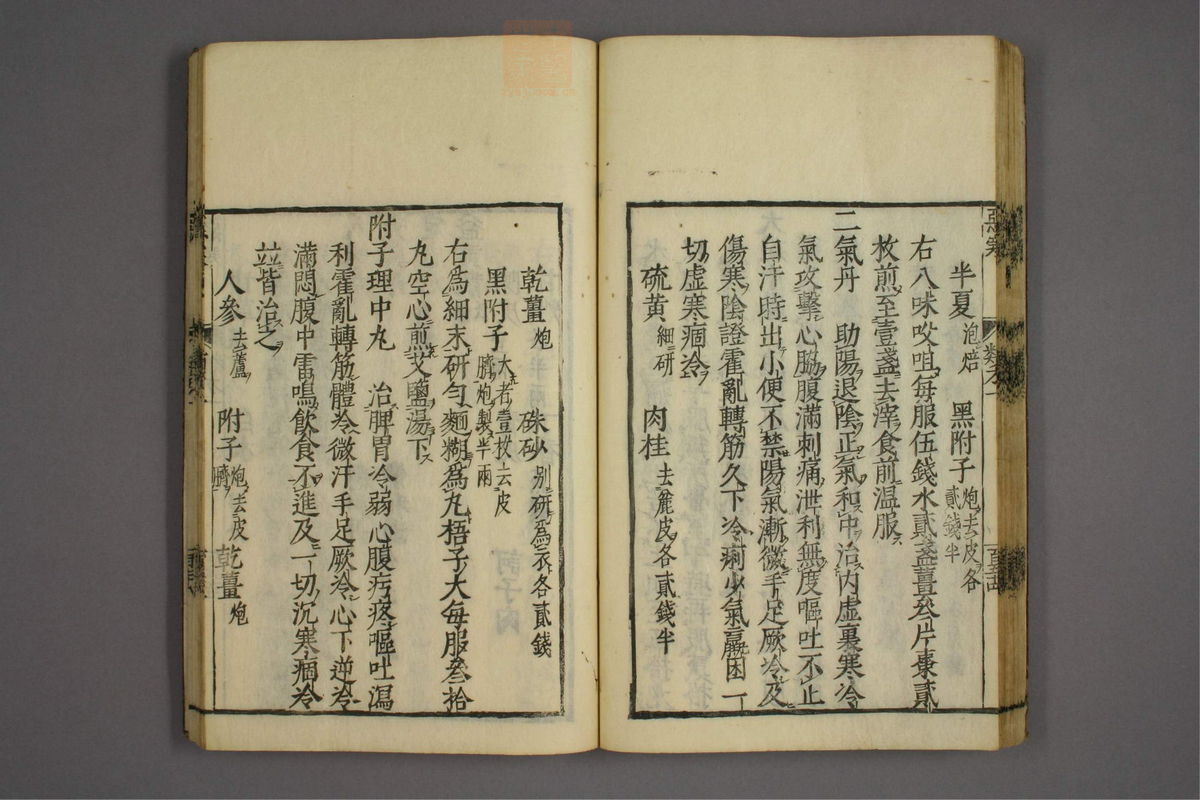 半夏泡焙　黑附子炮去皮各貳錢半
右八味㕮咀每服伍錢水貳盞薑叁片棗貳
枚煎至壹盞去滓食前温服
二氣丹　助陽退陰正氣和中治内虚裏寒冷
氣攻擊心脇腹滿刺痛泄利無度嘔吐不止
自汗時出小便不禁陽氣漸微手足厥冷及
傷寒陰證霍亂轉筋久下冷痢少氣羸困一
切虚寒痼冷
硫黄細研　肉桂去麄皮各貳錢半
乾薑炮　硃砂别研爲衣各貳錢
黑附子大者壹枚去皮臍炮製半兩
右爲細末研匀麵糊爲丸梧子大每服叁拾
丸空心煎艾鹽湯下
附子理中丸　治脾胃冷弱心腹疞疼嘔吐瀉
利霍亂轉筋體冷微汗手足厥冷心下逆冷
滿悶腹中雷鳴飲食不進及一切沉寒痼冷
竝皆治之
人參去蘆　附子炮去皮臍　乾薑炮